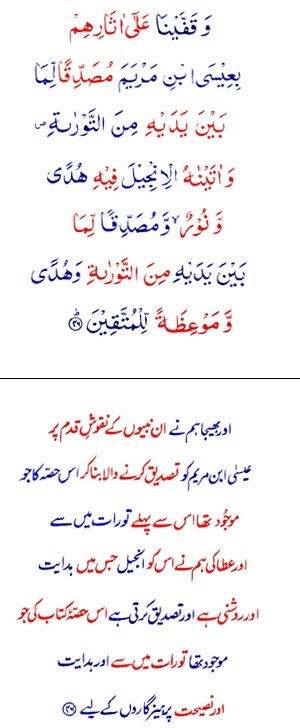 وَ قَفَّيْنَا عَلٰۤى اٰثَارِهِمْ
بِعِيْسَى ابْنِ مَرْيَمَ مُصَدِّقًا لِّمَا
بَيْنَ يَدَيْهِ مِنَ التَّوْرٰىةِ ۪
وَ اٰتَيْنٰهُ الْاِنْجِيْلَ فِيْهِ هُدًى
وَّ نُوْرٌ ۙ وَّ مُصَدِّقًا لِّمَا
بَيْنَ يَدَيْهِ مِنَ التَّوْرٰىةِ وَهُدًى
وَّ مَوْعِظَةً لِّلْمُتَّقِيْنَ ؕ﴿۴۶﴾
اور بھیجا ہم نے ان نبیوں کے نقوشِ قدم پر
عیسیٰ ابن مریم کو تصدیق کرنے والا بنا کر اس حصّہ کا جو
موجُود تھا اس سے پہلے تورات میں سے
اور عطا کی ہم نے اس کو انجیل جس میں ہدایت
اور روشنی ہے اور تصدیق کرتی ہے اس حصّۂ کتاب کی جو
موجود تھا تورات میں سے اور ہدایت
اور نصیحت پرہیزگاروں کے لیے ﴿۴۶﴾